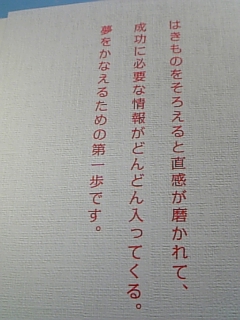 はきものをそろえると直感が磨かれて、
成功に必要な情報がどんどん入ってくる。
夢をかなえるための第一歩です。